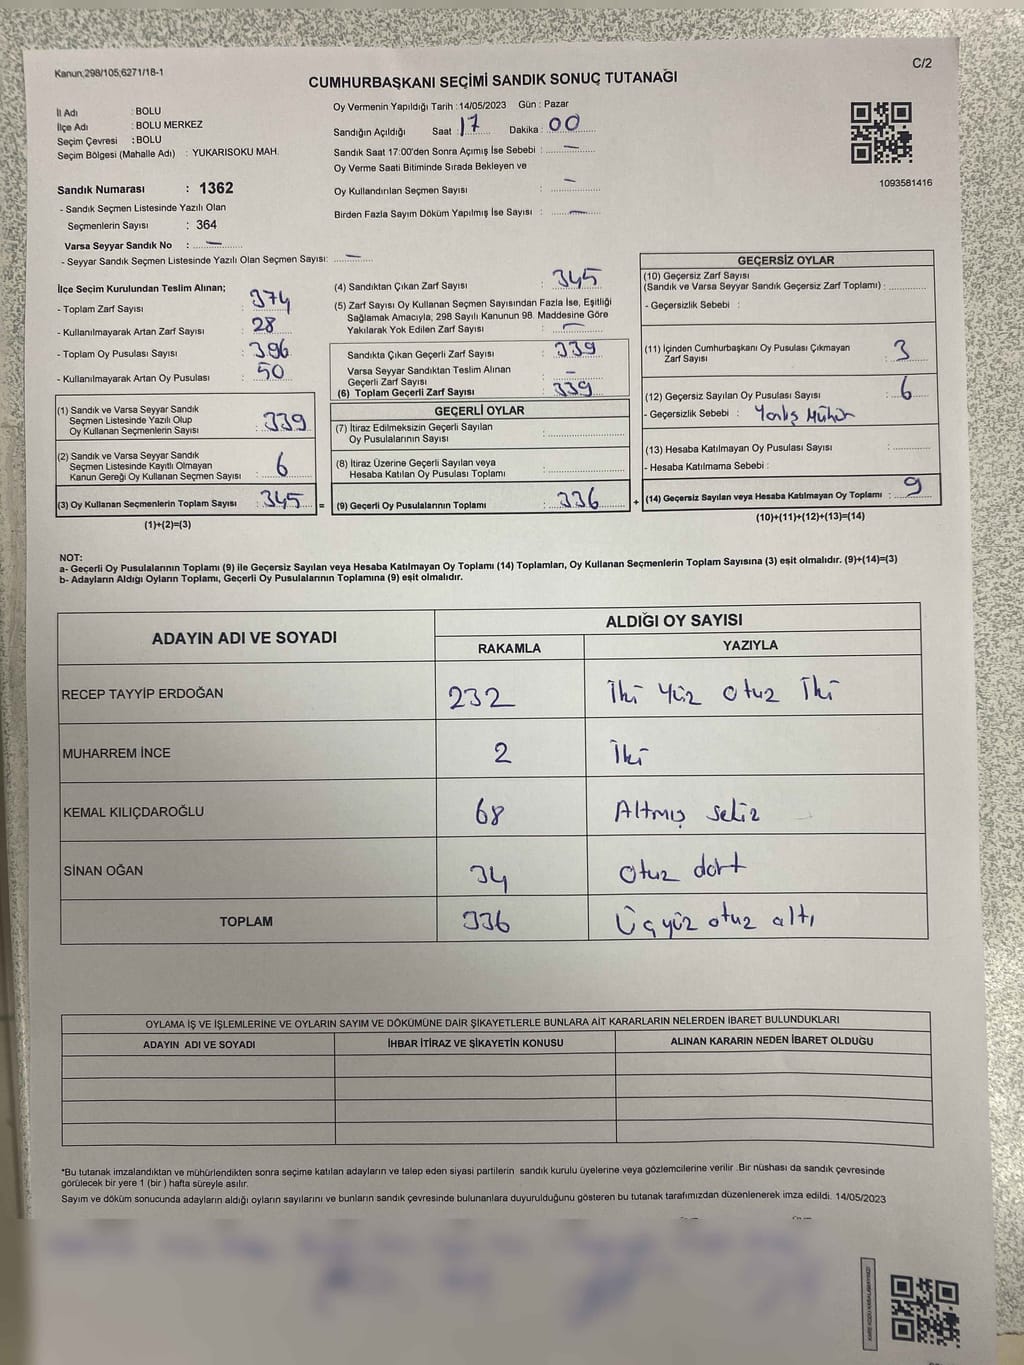 Kanun,298/105,6271/18-1
C/2
CUMHURBAŞKANI SEÇİMİ SANDIK SONUÇ TUTANAĞI
İl Adı : BOLU
İlçe Adı : BOLU MERKEZ
Seçim Çevresi : BOLU
Seçim Bölgesi (Mahalle Adı) : YUKARISOKU MAH.
Oy Vermenin Yapıldığı Tarih : 14/05/2023 Gün : Pazar
Sandığın Açıldığı Saat : 17 Dakika : 00
Sandık Saat 17:00'den Sonra Açımış İse Sebebi : —
Oy Verme Saati Bitiminde Sırada Bekleyen ve
Oy Kullandırılan Seçmen Sayısı : —
Birden Fazla Sayım Döküm Yapılmış İse Sayısı : —
1093581416
Sandık Numarası : 1362
- Sandık Seçmen Listesinde Yazılı Olan
Seçmenlerin Sayısı : 364
Varsa Seyyar Sandık No : —
- Seyyar Sandık Seçmen Listesinde Yazılı Olan Seçmen Sayısı: —
İlçe Seçim Kurulundan Teslim Alınan;
- Toplam Zarf Sayısı : 374
- Kullanılmayarak Artan Zarf Sayısı : 28
- Toplam Oy Pusulası Sayısı : 396
- Kullanılmayarak Artan Oy Pusulası : 50
(1) Sandık ve Varsa Seyyar Sandık
Seçmen Listesinde Yazılı Olup
Oy Kullanan Seçmenlerin Sayısı : 339
(2) Sandık ve Varsa Seyyar Sandık
Seçmen Listesinde Kayıtlı Olmayan
Kanun Gereği Oy Kullanan Seçmen Sayısı : 6
(3) Oy Kullanan Seçmenlerin Toplam Sayısı : 345 =
(1)+(2)=(3)
(4) Sandıktan Çıkan Zarf Sayısı : 345
(5) Zarf Sayısı Oy Kullanan Seçmen Sayısından Fazla İse, Eşitliği
Sağlamak Amacıyla; 298 Sayılı Kanunun 98. Maddesine Göre
Yakılarak Yok Edilen Zarf Sayısı : —
Sandıkta Çıkan Geçerli Zarf Sayısı : 339
Varsa Seyyar Sandıktan Teslim Alınan
Geçerli Zarf Sayısı : —
(6) Toplam Geçerli Zarf Sayısı : 339
GEÇERLİ OYLAR
(7) İtiraz Edilmeksizin Geçerli Sayılan
Oy Pusulalarının Sayısı :
(8) İtiraz Üzerine Geçerli Sayılan veya
Hesaba Katılan Oy Pusulası Toplamı :
(9) Geçerli Oy Pusulalarının Toplamı : 336 +
GEÇERSİZ OYLAR
(10) Geçersiz Zarf Sayısı
(Sandık ve Varsa Seyyar Sandık Geçersiz Zarf Toplamı) :
- Geçersizlik Sebebi :
(11) İçinden Cumhurbaşkanı Oy Pusulası Çıkmayan
Zarf Sayısı : 3
(12) Geçersiz Sayılan Oy Pusulası Sayısı : 6
- Geçersizlik Sebebi : Yanlış Mühür
(13) Hesaba Katılmayan Oy Pusulası Sayısı :
- Hesaba Katılmama Sebebi :
(14) Geçersiz Sayılan veya Hesaba Katılmayan Oy Toplamı : 9
(10)+(11)+(12)+(13)=(14)
NOT:
a- Geçerli Oy Pusulalarının Toplamı (9) ile Geçersiz Sayılan veya Hesaba Katılmayan Oy Toplamı (14) Toplamları, Oy Kullanan Seçmenlerin Toplam Sayısına (3) eşit olmalıdır. (9)+(14)=(3)
b- Adayların Aldığı Oyların Toplamı, Geçerli Oy Pusulalarının Toplamına (9) eşit olmalıdır.
ADAYIN ADI VE SOYADI
ALDIĞI OY SAYISI
RAKAMLA YAZIYLA
RECEP TAYYİP ERDOĞAN 232 İki Yüz otuz İki
MUHARREM İNCE 2 İki
KEMAL KILIÇDAROĞLU 68 Altmış sekiz
SİNAN OĞAN 34 Otuz dört
TOPLAM 336 Üçyüz otuz altı
OYLAMA İŞ VE İŞLEMLERİNE VE OYLARIN SAYIM VE DÖKÜMÜNE DAİR ŞİKAYETLERLE BUNLARA AİT KARARLARIN NELERDEN İBARET BULUNDUKLARI
ADAYIN ADI VE SOYADI İHBAR İTİRAZ VE ŞİKAYETİN KONUSU ALINAN KARARIN NEDEN İBARET OLDUĞU
*Bu tutanak imzalandıktan ve mühürlendikten sonra seçime katılan adayların ve talep eden siyasi partilerin sandık kurulu üyelerine veya gözlemcilerine verilir .Bir nüshası da sandık çevresinde
görülecek bir yere 1 (bir ) hafta süreyle asılır.
Sayım ve döküm sonucunda adayların aldığı oyların sayılarını ve bunların sandık çevresinde bulunanlara duyurulduğunu gösteren bu tutanak tarafımızdan düzenlenerek imza edildi. 14/05/2023